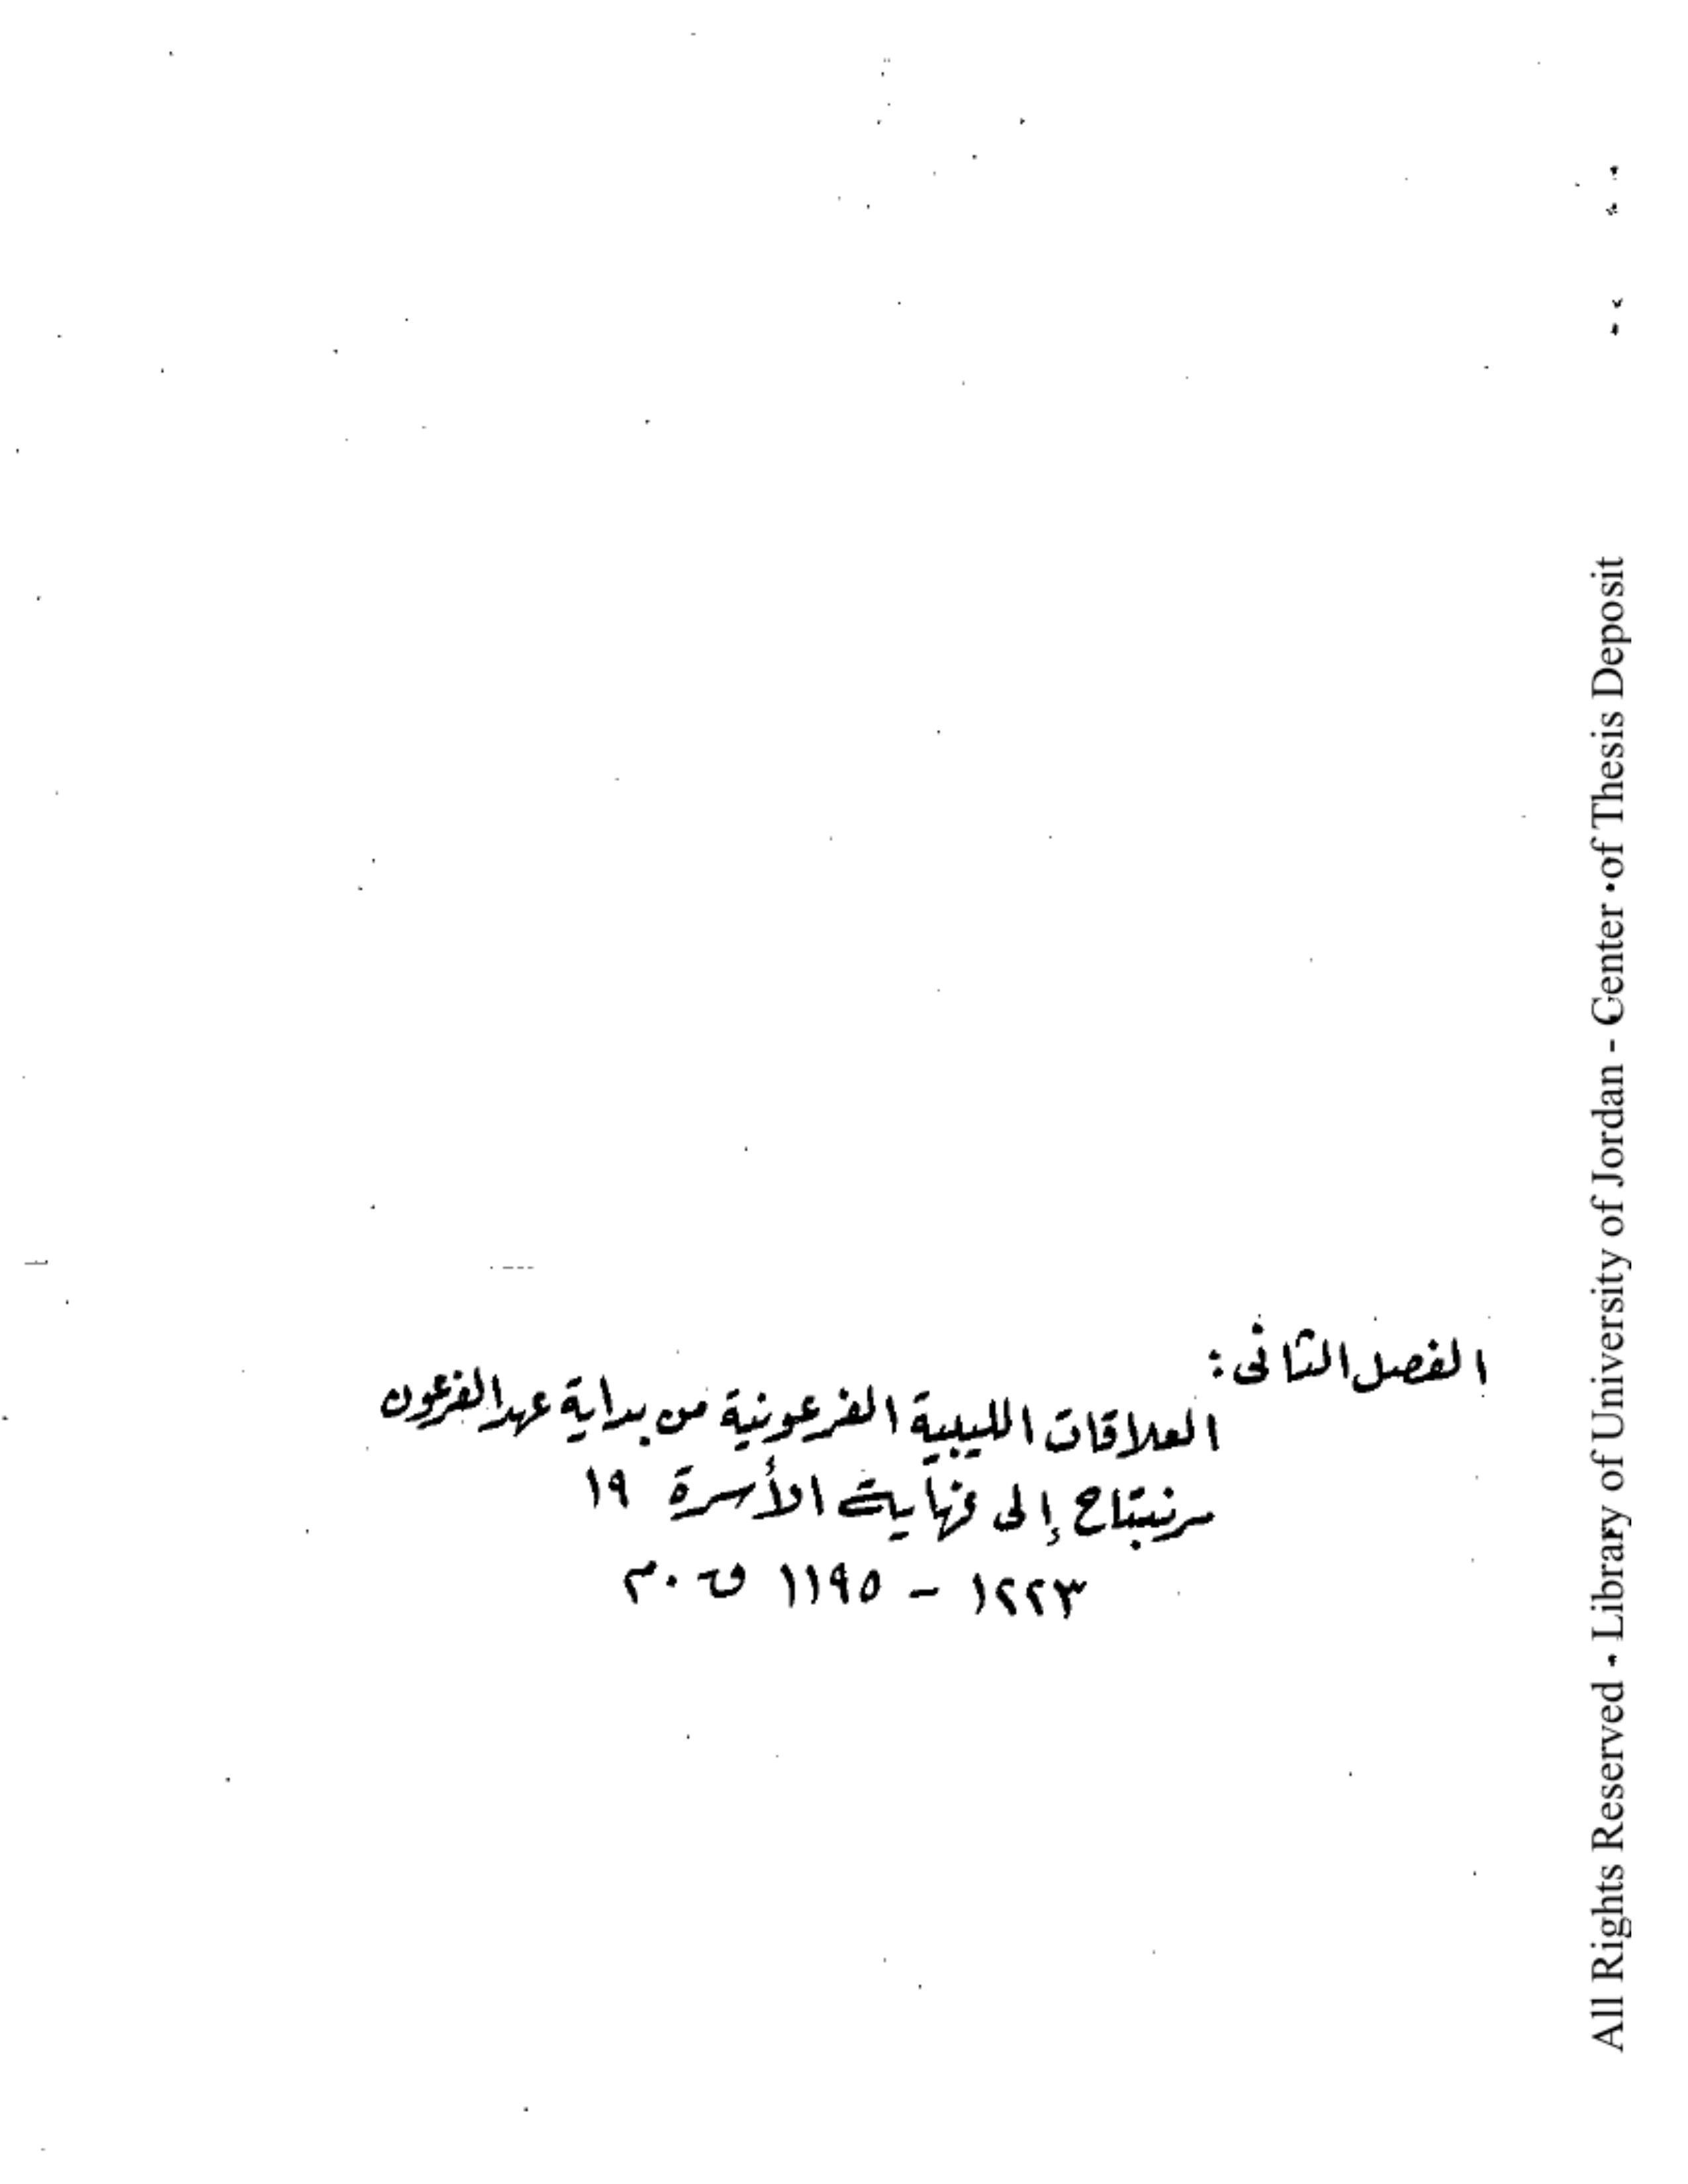 الفصل الثانى:
العلاقات الليبية الفرعونية من بداية عهد الفرعون
مرنبتاح إلى نهاية الأسرة ١٩
١٢٢٣ - ١١٩٥ ق٠م
All Rights Reserved - Library of University of Jordan - Center of Thesis Deposit